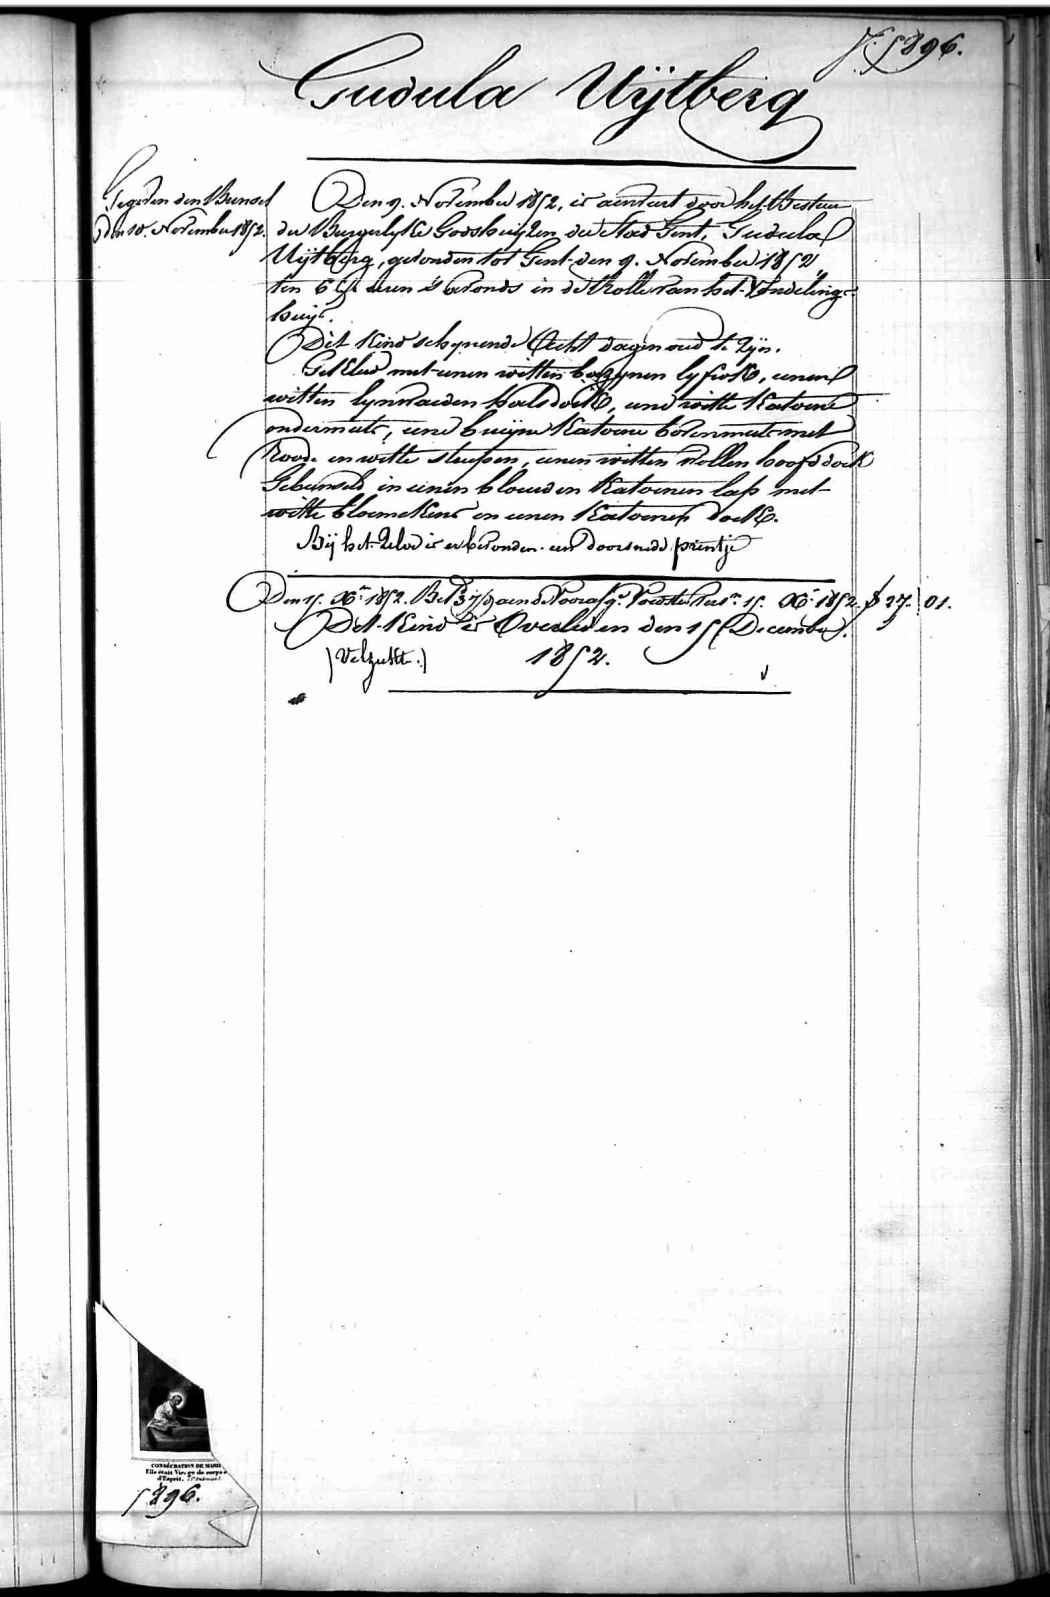 N. 5296.
Gudula Uÿtberg
Gegeven den Bunsel
den 10. November 1852.
Den 9. November 1852, is aenveert door het Bestuur
der Burgerlyke Godshuyzen der Stad Gent, Gudula
Uÿtberg, gevonden tot Gent den 9. November 1852
ten 6 1/2 uren s'avonds in de Rolle van het Vondeling-
huys.
Dit Kind schynende Acht dagen oud te Zyn.
Gekleed met eenen witten bazynen lyfrok, eenen
witten lynwaeden halsdoek, eene witte Katoene
ondermuts, eene bruyne Katoene bovenmuts met
Roode en witte streepen, eenen witten wollen hoofddoek
Gebunseld in eenen blauwen Katoenen lap met
witte bloemekens en eenen Katoenen doek.
Bÿ het Zelve is er bevonden een doorsnede prentje
Den 15. Xb.r 1852. Bet. aen de Voedster 15. Xb.r 1852. 27. 01.
Dit Kind is Overleden den 15 December
(Velzeke.) 1852.
CONSÉCRATION DE MARIE
Elle était Vierge de corps e
d'Esprit.
5296.